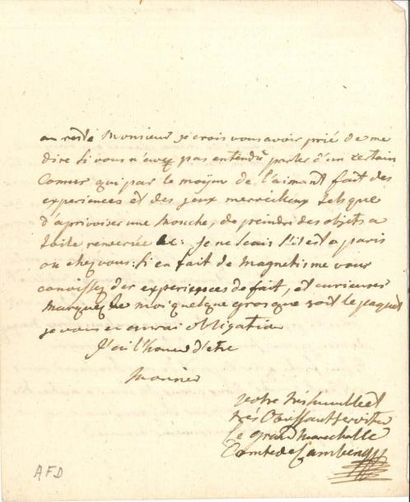 au reste Monsieur je crois vous avoir prié de me
dire si vous n'avez pas entendu parler d'un certain
Comus qui par le moÿen de l'aimant fait des
experiences et des jeux merveilleux tels que
d'aprivoiser une Mouche, de peindre des objets a
toile renversée &c. je ne scais s'il est a paris
ou chez vous. Si en fait de Magnetisme vous
conoissez des experiences de fait, et curieuses
Marquez le moi quelque gros que soit le paquet
je vous en aurai obligation
J'ai l'honeur d'etre
Monsieur
votre tres humble et
tres obeissant serviteur
le grand Marechalle
Comte de
AFD